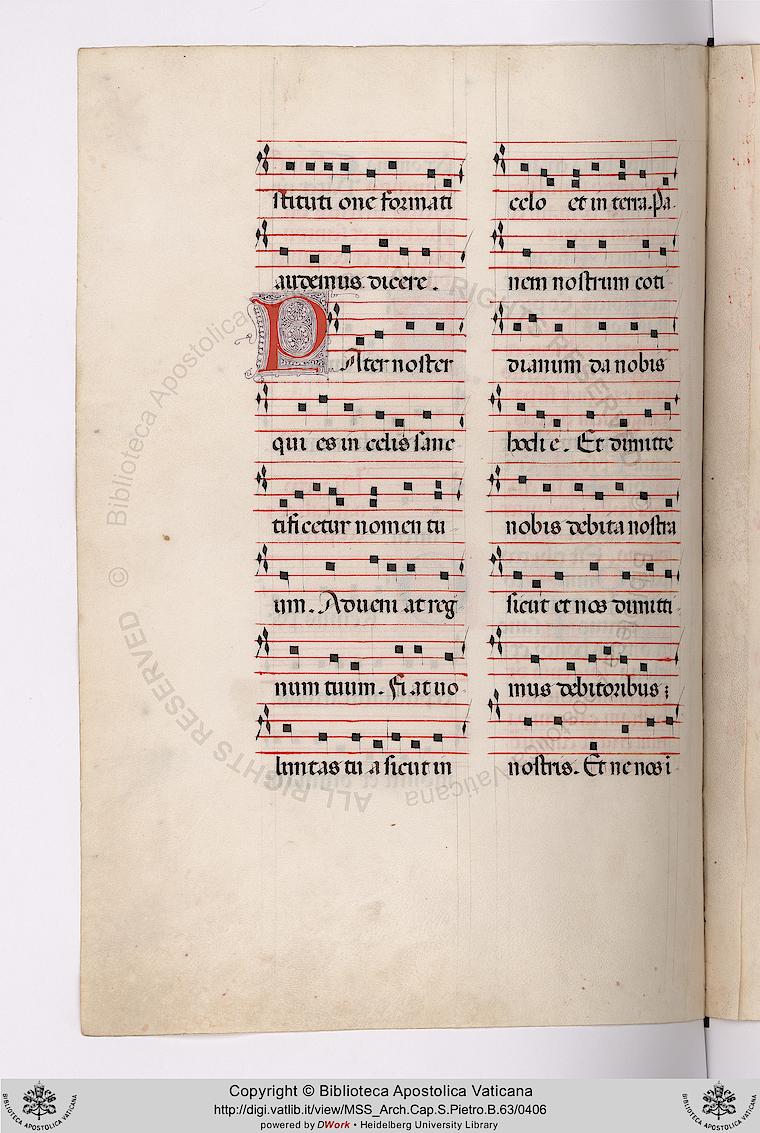 stituti one formati
audemus dicere.
PAter noster
qui es in celis sanc
tificetur nomen tu
um. Adveni at reg
num tuum. Fi at uo
luntas tu a sicut in
celo et in terra. Pa
nem nostrum coti
dianum da nobis
hodi e. Et dimitte
nobis debita nostra
sicut et nos dimitti
mus debitoribus
nostris. Et ne nos i
Biblioteca Apostolica Vaticana
ALL RIGHTS RESERVED ©
Copyright © Biblioteca Apostolica Vaticana
http://digi.vatlib.it/view/MSS_Arch.Cap.S.Pietro.B.63/0406
powered by DWork • Heidelberg University Library
BIBLIOTECA APOSTOLICA VATICANA
BIBLIOTECA APOSTOLICA VATICANA